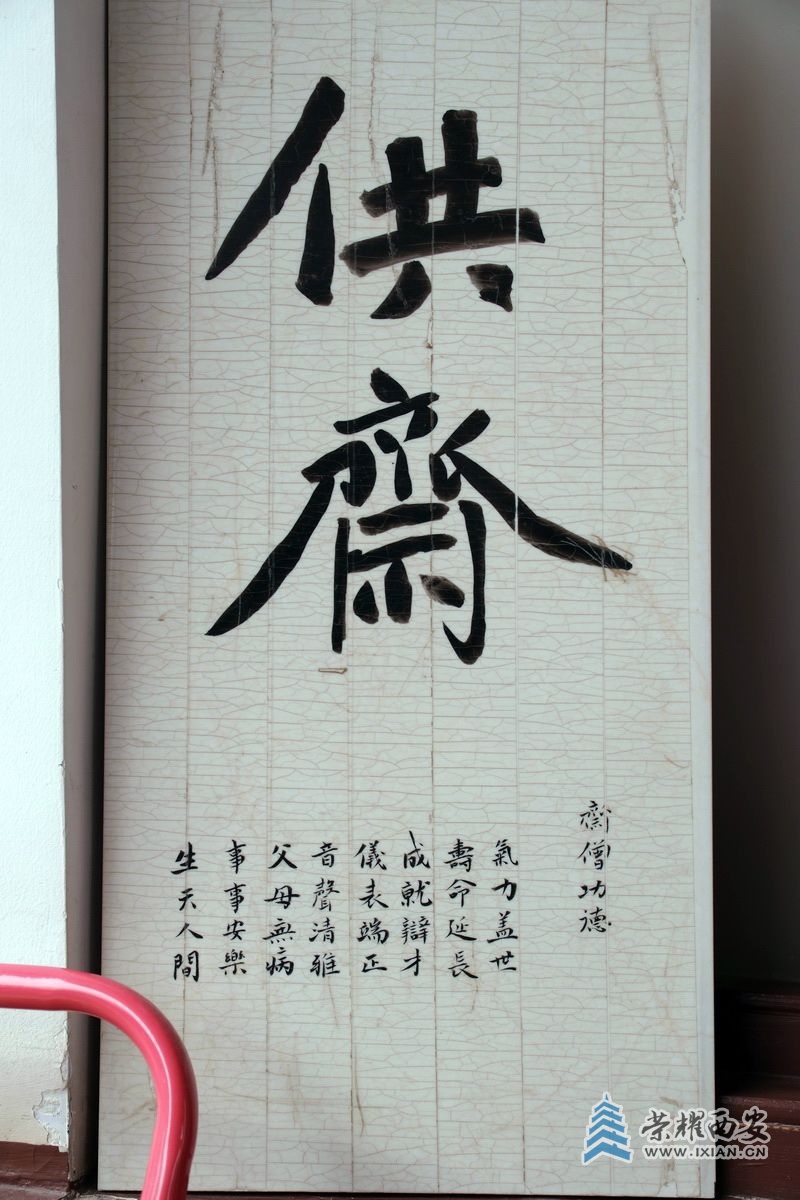 供齋
齋僧功德
氣力盖世
壽命延長
成就辯才
儀表端正
音聲清雅
父母無病
事事安樂
生天人間
荣耀西安
WWW.IXIAN.CN